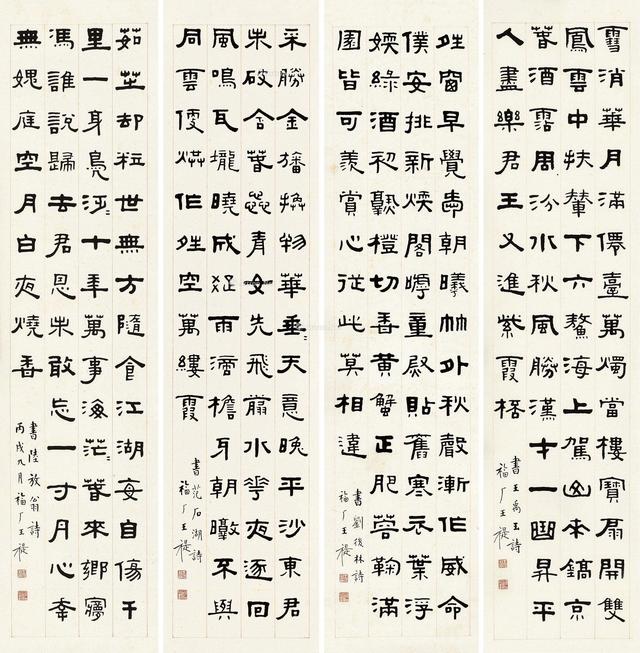 雪消華月滿僊臺萬燭當樓寶扇開雙
鳳雲中扶輦下六鰲海上駕山來鎬京
春酒霑周汾水秋風勝漢才一曲昇平
人盡樂君王又進紫霞桮
書王禹玉詩
福厂王禔
夝窗早覺愛朝曦竹外秋聲漸作威命
僕安排新煖閣嘑童熨貼舊寒衣葉浮
媆綠酒初熟橙切香黃蟹正肥蓉鞠滿
園皆可羨賞心從此莫相違
書劉後村詩
福厂王禔
采勝金旛換物華垂〻天意晚平沙東君
未破含春蕊青女先飛翦水華夜逐回
風鳴瓦壠曉成疏雨滴檐牙朝暾不與
同雲便烘作夝空萬縷霞
書范石湖詩
福厂王禔
茹芝却粒世無方隨食江湖每自傷千
里一身鳧泛〻十年萬事海茫〻春來鄉夢
馮誰說歸去君恩未敢忘一寸丹心幸
無媿庭空月白夜燒香
書陸放翁詩
丙戌九月福厂王禔